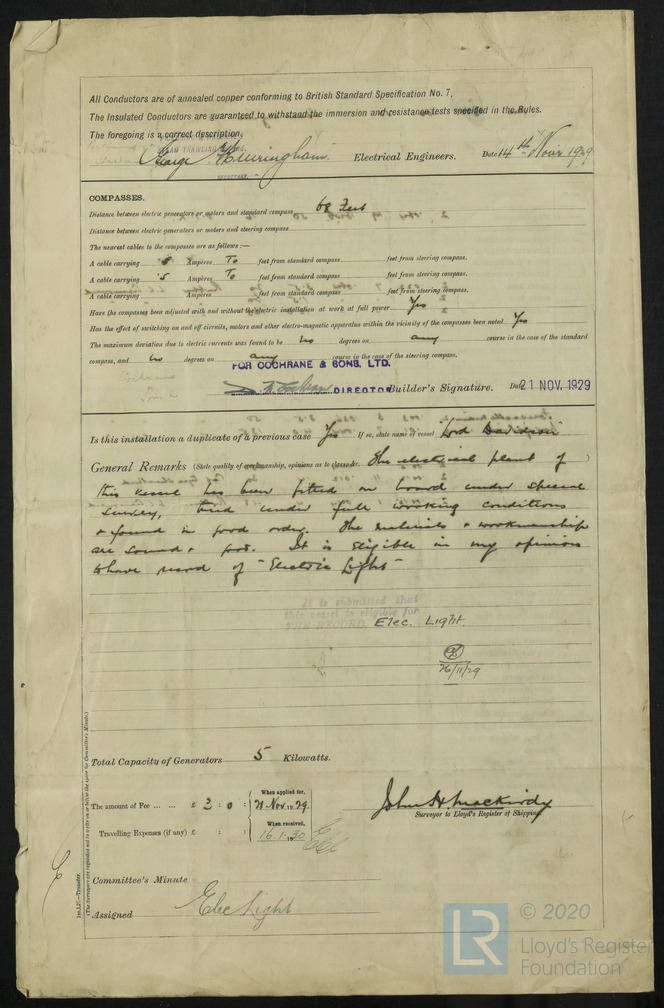 All Conductors are of annealed copper conforming to British Standard Specification No. 7,
The Insulated Conductors are guaranteed to withstand the immersion and resistance tests specified in the Rules.
The foregoing is a correct description,
STEAM TRAWLING
SECRETARY.
George Electrical Engineers. Date 14th Novr 1929
COMPASSES.
Distance between electric generators or motors and standard compass 68 Feet
Distance between electric generators or motors and steering compass
The nearest cables to the compasses are as follows:—
A cable carrying Ampères To feet from standard compass feet from steering compass.
A cable carrying .5 Ampères To feet from standard compass feet from steering compass.
A cable carrying Ampères feet from standard compass feet from steering compass.
Have the compasses been adjusted with and without the electric installation at work at full power Yes
Has the effect of switching on and off circuits, motors and other electro-magnetic apparatus within the vicinity of the compasses been noted Yes
The maximum deviation due to electric currents was found to be No degrees on any course in the case of the standard
compass, and No degrees on any course in the case of the steering compass.
FOR COCHRANE & SONS, LTD.
DIRECTOR Builder's Signature. Date 21 NOV. 1929
Is this installation a duplicate of a previous case Yes If so, state name of vessel "Lord Davidson"
General Remarks (State quality of workmanship, opinions as to class &c. The electrical plant of )
this vessel has been fitted on board under special
survey, tried under full working conditions
& found in good order. The materials & workmanship
are sound & good. It is eligible in my opinion
to have record of "Electric Light"
It is submitted that
this vessel is eligible for
THE RECORD. Elec. Light.
26/11/29
Total Capacity of Generators 5 Kilowatts.
The amount of Fee ... ... £ 3 : 0 : When applied for, 21 Nov. 1929.
Travelling Expenses (if any) £ : : When received, 16.1.1930
John H. Mackirdy
Surveyor to Lloyd's Register of Shipping.
Committee's Minute
Assigned Elec Light
1m.1,27.—Transfer.
(The Surveyors are requested not to write on or below the space for Committee's Minute.)
LR
© 2020
Lloyd's Register
Foundation